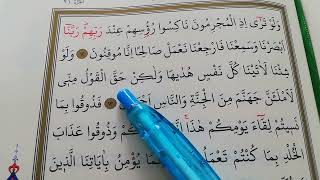 وَلَوْ تَرٰٓى اِذِ الْمُجْرِمُونَ نَاكِسُوا رُؤُسِهِمْ عِنْدَ رَبِّهِمْ رَبَّنَٓا
اَبْصَرْنَا وَسَمِعْنَا فَارْجِعْنَا نَعْمَلْ صَالِحًا اِنَّا مُوقِنُونَ وَلَوْ
شِئْنَا لَاٰتَيْنَا كُلَّ نَفْسٍ هُدٰيهَا وَلٰكِنْ حَقَّ الْقَوْلُ مِنّٖى
لَاَمْلَئَنَّ جَهَنَّمَ مِنَ الْجِنَّةِ وَالنَّاسِ فَذُوقُوا بِمَا
نَسٖيتُمْ لِقَٓاءَ يَوْمِكُمْ هٰذَا وَذُوقُوا عَذَابَ
الْخُلْدِ بِمَا كُنْتُمْ يُؤْمِنُ بِاٰيَاتِنَا الَّذٖينَ